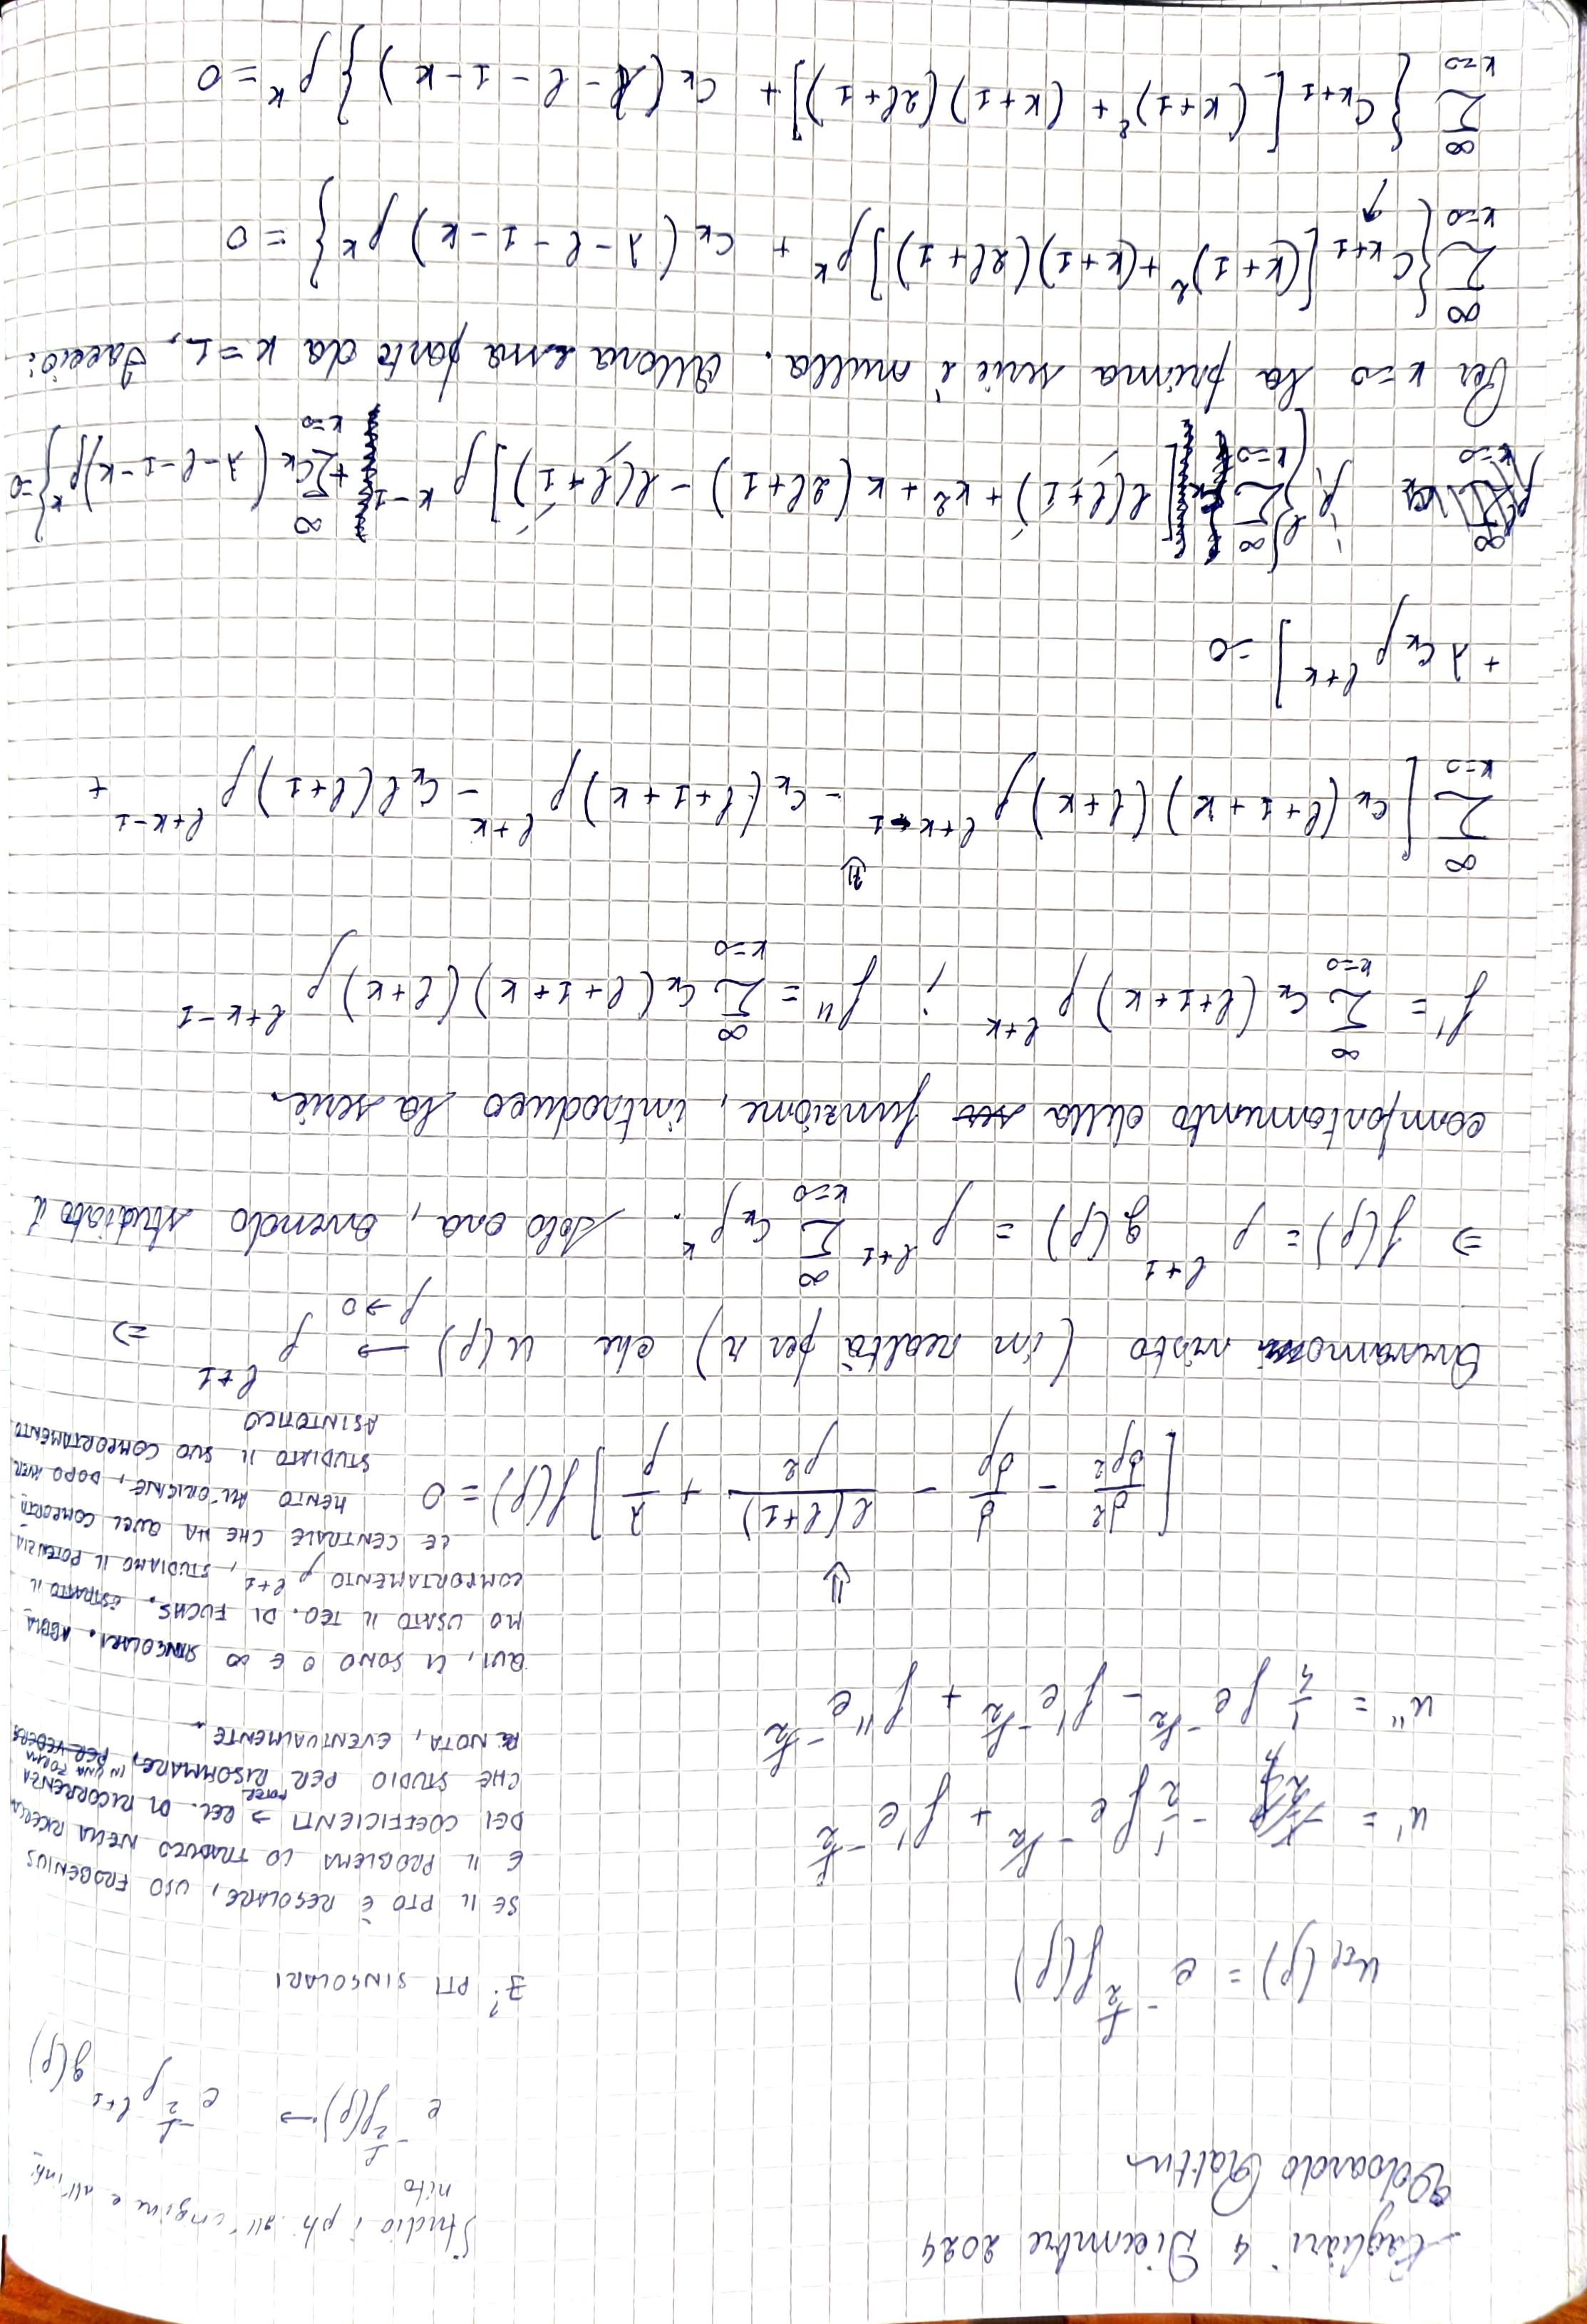 Cagliari 4 Dicembre 2024
Edoardo Pattus
Studio i pti all'origine e all'infi-
nito
e^{-ρ/2} f(ρ) → e^{-ρ/2} ρ^{l+1} g(ρ)
u_{El}(ρ) = e^{-ρ/2} f(ρ)
∃? PTI SINGOLARI
SE IL PTO È REGOLARE, USO FROBENIUS
E IL PROBLEMA LO TRADUCO NELLA RICERCA
DEI COEFFICIENTI → REL. DI RICORRENZA
CHE STUDIO PER POTER RISOMMARE, IN UNA FORMA PER VEDERE
NOTA, EVENTUALMENTE.
u' = -1/2 f e^{-ρ/2} + f' e^{-ρ/2}
u'' = 1/4 f e^{-ρ/2} - f' e^{-ρ/2} + f'' e^{-ρ/2}
QUI, CI SONO 0 E ∞ SINGOLARI. ABBIA-
MO USATO IL TEO. DI FUCHS. ESTRATTO IL
COMPORTAMENTO ρ^{l+1}, STUDIAMO IL POTENZIA
LE CENTRALE CHE HA QUEL COMPORTA
MENTO ALL'ORIGINE, DOPO AVER
STUDIATO IL SUO COMPORTAMENTO
ASINTOTICO
⇓
[d²/dρ² - d/dρ - l(l+1)/ρ² + λ/ρ] f(ρ) = 0
Avevamo visto (in realtà per r) che u(ρ) →_{ρ→0} ρ^{l+1} ⇒
⇒ f(ρ) = ρ^{l+1} g(ρ) = ρ^{l+1} Σ_{k=0}^{∞} c_k ρ^k. Solo ora, avendo studiato il
comportamento della ser funzione, introduco la serie.
f' = Σ_{k=0}^{∞} c_k (l+1+k) ρ^{l+k} ; f'' = Σ_{k=0}^{∞} c_k (l+1+k)(l+k) ρ^{l+k-1}
⇓
Σ_{k=0}^{∞} [c_k (l+1+k)(l+k) ρ^{l+k-1} - c_k (l+1+k) ρ^{l+k} - c_k l(l+1) ρ^{l+k-1} +
+ λ c_k ρ^{l+k}] = 0
ρ^l {Σ_{k=0}^{∞} c_k [l(l+1) + k² + k(2l+1) - l(l+1)] ρ^{k-1} + Σ_{k=0}^{∞} c_k (λ-l-1-k) ρ^k} = 0
Per k=0 la prima serie è nulla. Allora essa parte da k=1. Faccio:
Σ_{k=0}^{∞} {c_{k+1} [(k+1)² + (k+1)(2l+1)] ρ^k + c_k (λ-l-1-k) ρ^k} = 0
Σ_{k=0}^{∞} {c_{k+1} [(k+1)² + (k+1)(2l+1)] + c_k (λ-l-1-k)} ρ^k = 0